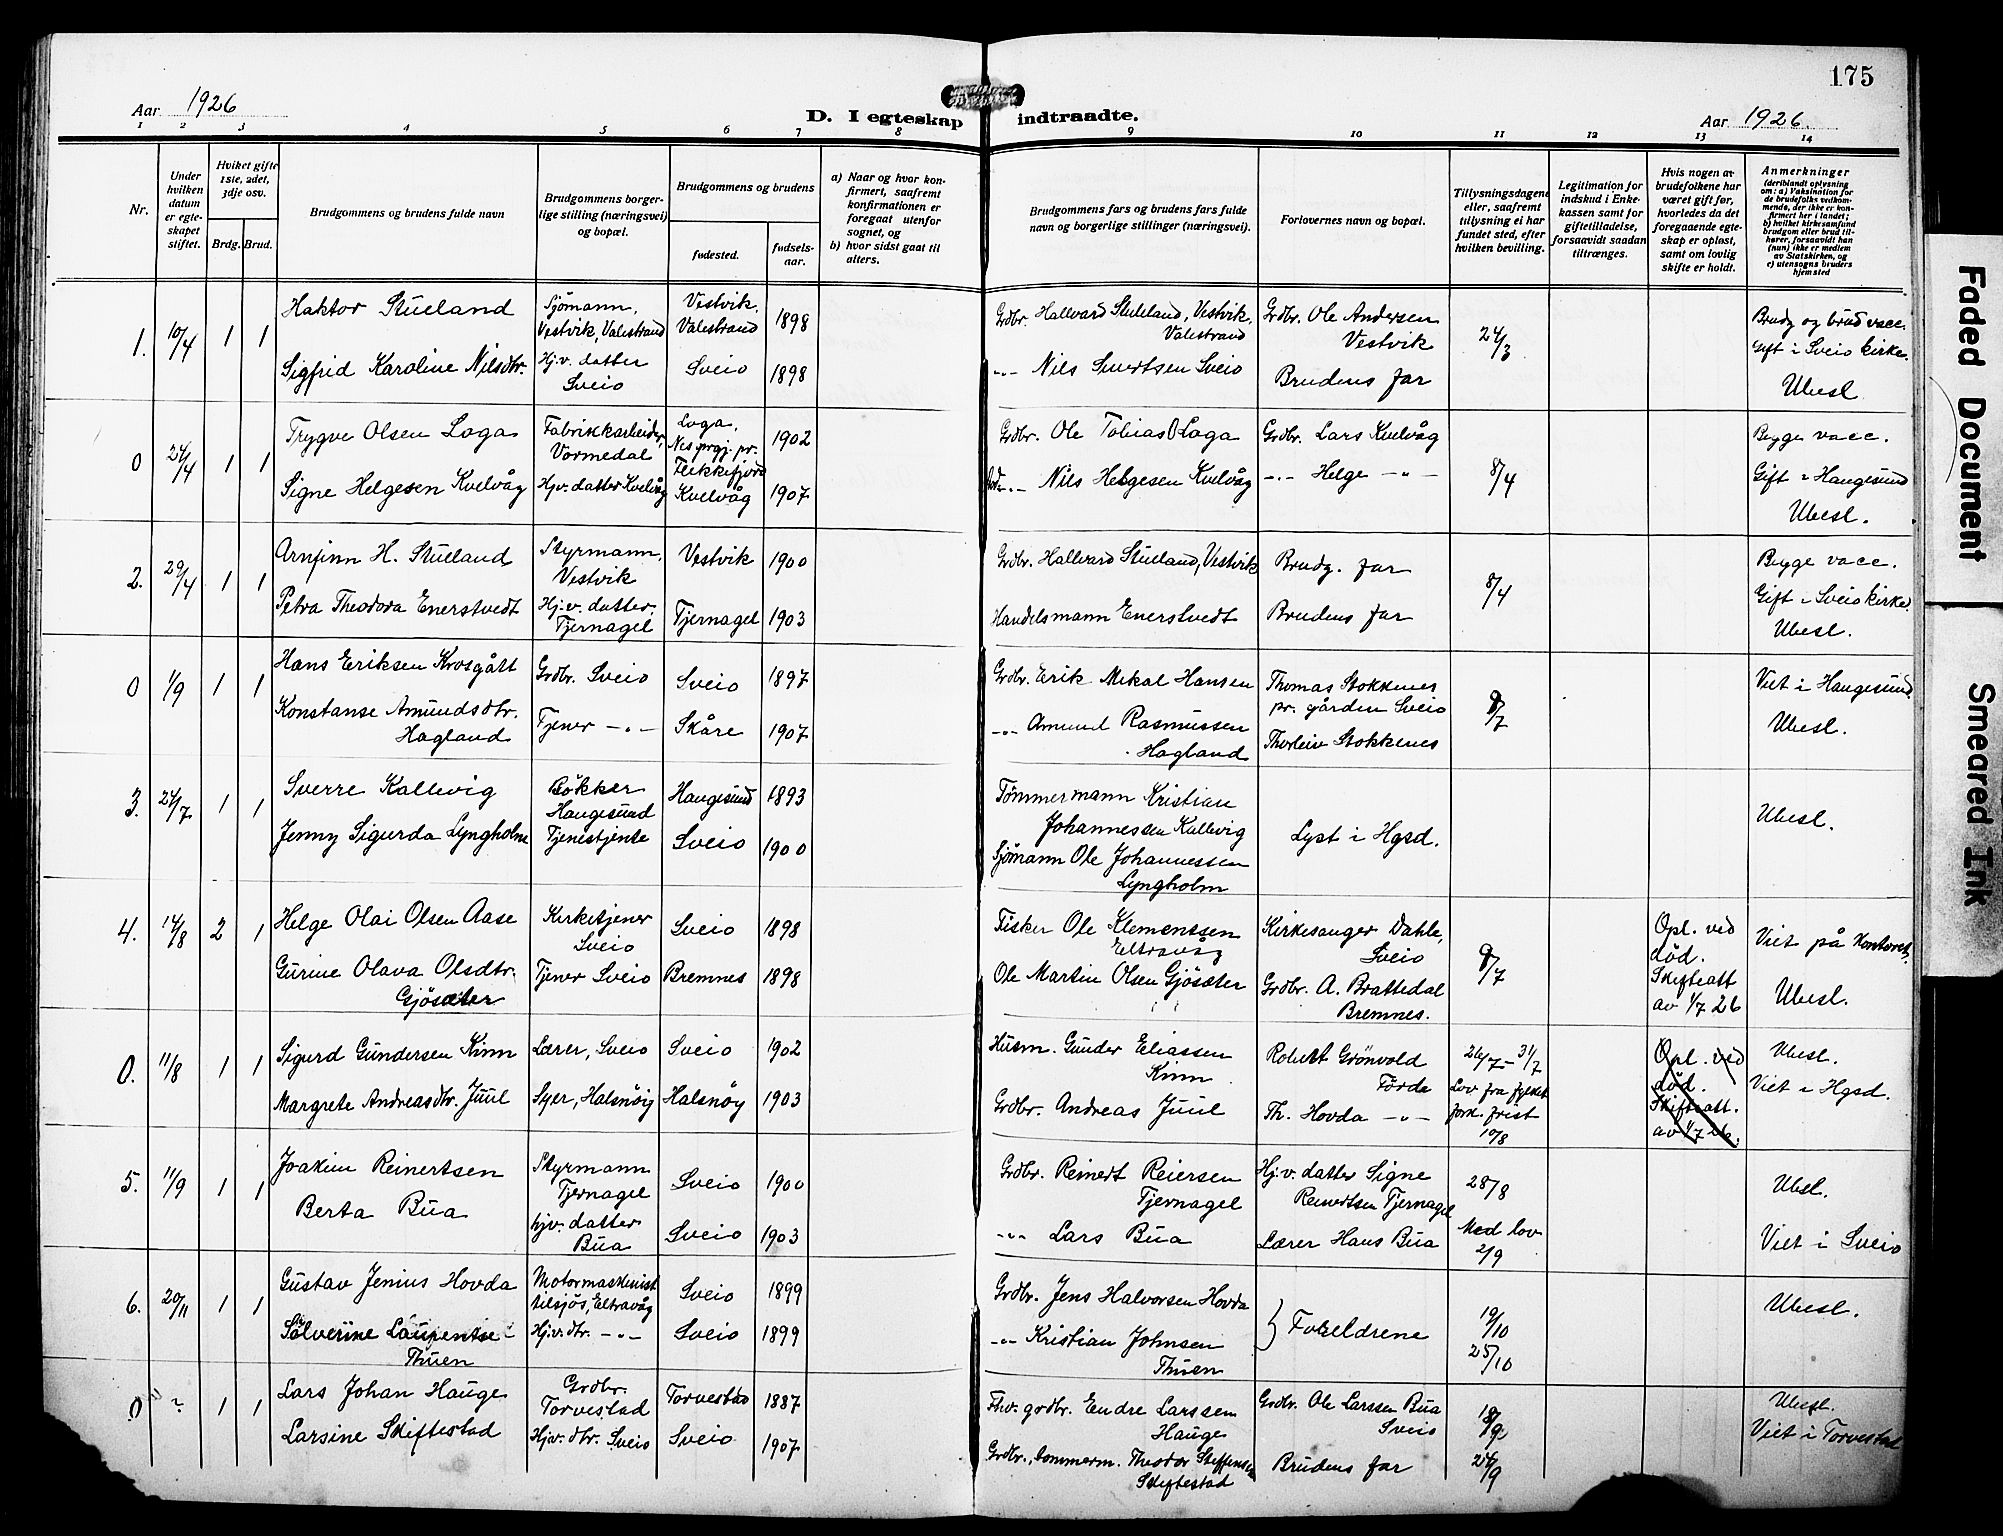 175
Aar 1926
D. I egteskap indtraadte.
Aar 1926.
1 2 3 4 5 6 7 8 9 10 11 12 13 14
Nr.
Under hvilken datum er egteskapet stiftet.
Hvilket gifte 1ste, 2det, 3dje osv.
Brdg. Brud.
Brudgommens og brudens fulde navn
Brudgommens borgerlige stilling (næringsvei) og bopæl.
Brudgommens og brudens
fødested.
fødselsaar.
a) Naar og hvor konfirmert, saafremt konfirmationen er foregaat utenfor sognet, og
b) hvor sidst gaat til alters.
Brudgommens fars og brudens fars fulde navn og borgerlige stillinger (næringsvei).
Forlovernes navn og bopæl.
Tillysningsdagene eller, saafremt tillysning ei har fundet sted, efter hvilken bevilling.
Legitimation for indskud i Enkekassen samt for giftetilladelse, forsaavidt saadan tiltrænges.
Hvis nogen av brudefolkene har været gift før, hvorledes da det foregaaende egteskap er opløst, samt om lovlig skifte er holdt.
Anmerkninger
(deriblandt oplysning om: a) Vaksination for de brudefolks vedkommende, der ikke er konfirmert her i landet; b) hvilket kirkesamfund brudgom eller brud tilhører, forsaavidt han (hun) ikke er medlem av Statskirken, og c) utensogns bruders hjemsted
1. 10/4 1 1
Haktor Stueland
Sjømann, Vestvik, Valestrand
Vestvik, Valestrand
1898
Grdbr. Hallvard Stueland, Vestvik, Valestrand
Grdbr. Ole Andersen Vestvik
24/3
Brudg og brud vacc.
Gift i Sveio kirke.
Ubesl.
Sigfrid Karoline Nilsdtr.
Hj.v. datter Sveio
Sveio
1898
-"- Nils Sivertsen Sveio
Brudens far
0 24/4 1 1
Trygve Olsen Loga
Fabrikkarbeider, Vormedal
Loga, Nes prgj. pr. Flekkefjord
1902
Grdbr. Ole Tobias Loga
Grdbr. Lars Kvelvåg
8/4
Begge vacc.
Gift i Haugesund
Ubesl.
Signe Helgesen Kvelvåg
Hj.v. datter Kvelvåg
Kvelvåg
1907
-"- Nils Helgesen Kvelvåg
-"- Helge -"-
2. 29/4 1 1
Arnfinn H. Stueland
Styrmann, Vestvik
Vestvik
1900
Grdbr. Hallvard Stueland, Vestvik
Brudg. far
8/4
Begge vacc.
Gift i Sveio kirke.
Ubesl.
Petra Theodora Enerstvedt
Hj.v. datter. Tjernagel
Tjernagel
1903
Handelsmann Enerstvedt
Brudens far
0 1/9 1 1
Hans Eriksen Krosgått
Grdbr. Sveio
Sveio
1897
Grdbr. Erik Mikal Hansen
Thomas Stokkenes pr. gården Sveio
9/7
Viet i Haugesund
Ubesl.
Konstanse Amundsdtr. Hagland
Tjener -"-
Skåre
1907
-"- Amund Rasmussen Hagland
Thorleiv Stokkenes
3. 24/7 1 1
Sverre Kallevig
Bökker Haugesund
Haugesund
1893
Tømmermann Kristian Johannessen Kallevig
Lyst i Hgsd.
Ubesl.
Jenny Sigurda Lyngholm
Tjenestjente
Sveio
1900
Sjømann Ole Johannessen Lyngholm
4. 14/8 2 1
Helge Olai Olsen Aase
Kirketjener Sveio
Sveio
1898
Fisker Ole Klementssen Eltravåg
Kirkesanger Dahle, Sveio
9/7
Opl. ved död. Skifteatt av 1/7 26
Viet på kontoret.
Ubesl.
Gurine Olava Olsdtr. Gjösæter
Tjener Sveio
Bremnes
1898
Ole Martin Olsen Gjösæter
Grdbr. A. Brattedal Bremnes.
0. 11/8 1 1
Sigurd Gundersen Kinn
Lærer, Sveio
Sveio
1902
Husm. Gunder Eliassen Kinn
Robert Grönvold Förde
26/7 - 31/7
Lov fra fylket fork. frist 10/8
Opl. ved död. Skifteatt. av 1/7 26.
Ubesl.
Viet i Hgsd.
Margrete Andreasdtr. Juul
Syer, Halsnöy
Halsnöy
1903
Grdbr. Andreas Juul
Th. Hovda -"-
5. 11/9 1 1
Joakim Reinertsen
Styrmann Tjernagel
Sveio
1900
Grdbr. Reinert Reiersen Tjernagel
Hj.v. datter Signe Reinertsen Tjernagel
28/8
Med lov 2/9
Ubsl.
Viet i Sveio
Berta Bua
hjv. datter Bua
Sveio
1903
-"- Lars Bua
Lærer Hans Bua
6. 20/11 1 1
Gustav Jenius Hovda
Motormaskinist tilsjös, Eltravåg
Sveio
1899
Grdbr. Jens Halvorsen Hovda
Foreldrene
19/10
25/10
Ubesl.
Sølverine Laurentse Thuen
Hj.v. dtr. -"-
Sveio
1899
-"- Kristian Johnsen Thuen
0 ? 1 1
Lars Johan Hauge
Grdbr. Torvestad
Torvestad
1887
Fhv. grdbr. Endre Larssen Hauge
Grdbr. Ole Larssen Bua Sveio
24/9
Ubesl.
Viet i Torvestad
Larsine Skiftestad
Hjv. dtr. Sveio
Sveio
1907
Grdbr., Lommerm. Theodor Steffensen Skiftestad
Brudens far
Faded Document
Smeared Ink